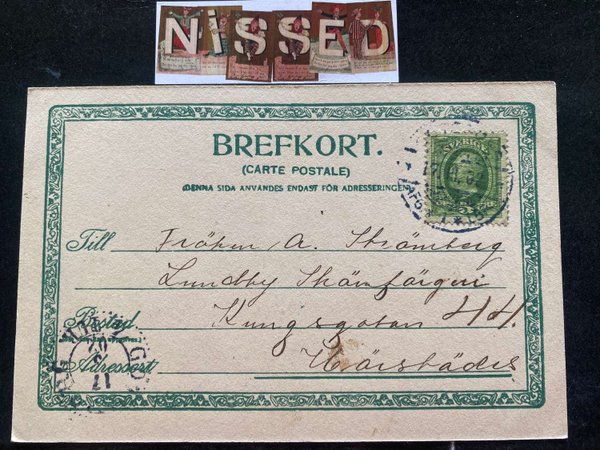 NISSED
BREFKORT.
(CARTE POSTALE)
(DENNA SIDA ANVÄNDES ENDAST FÖR ADRESSERINGEN)
SVERIGE
Till Fröken A. Strömberg
Lundby Skönfärgeri
Bostad Kungsgatan 44.
Adressort Härstädes